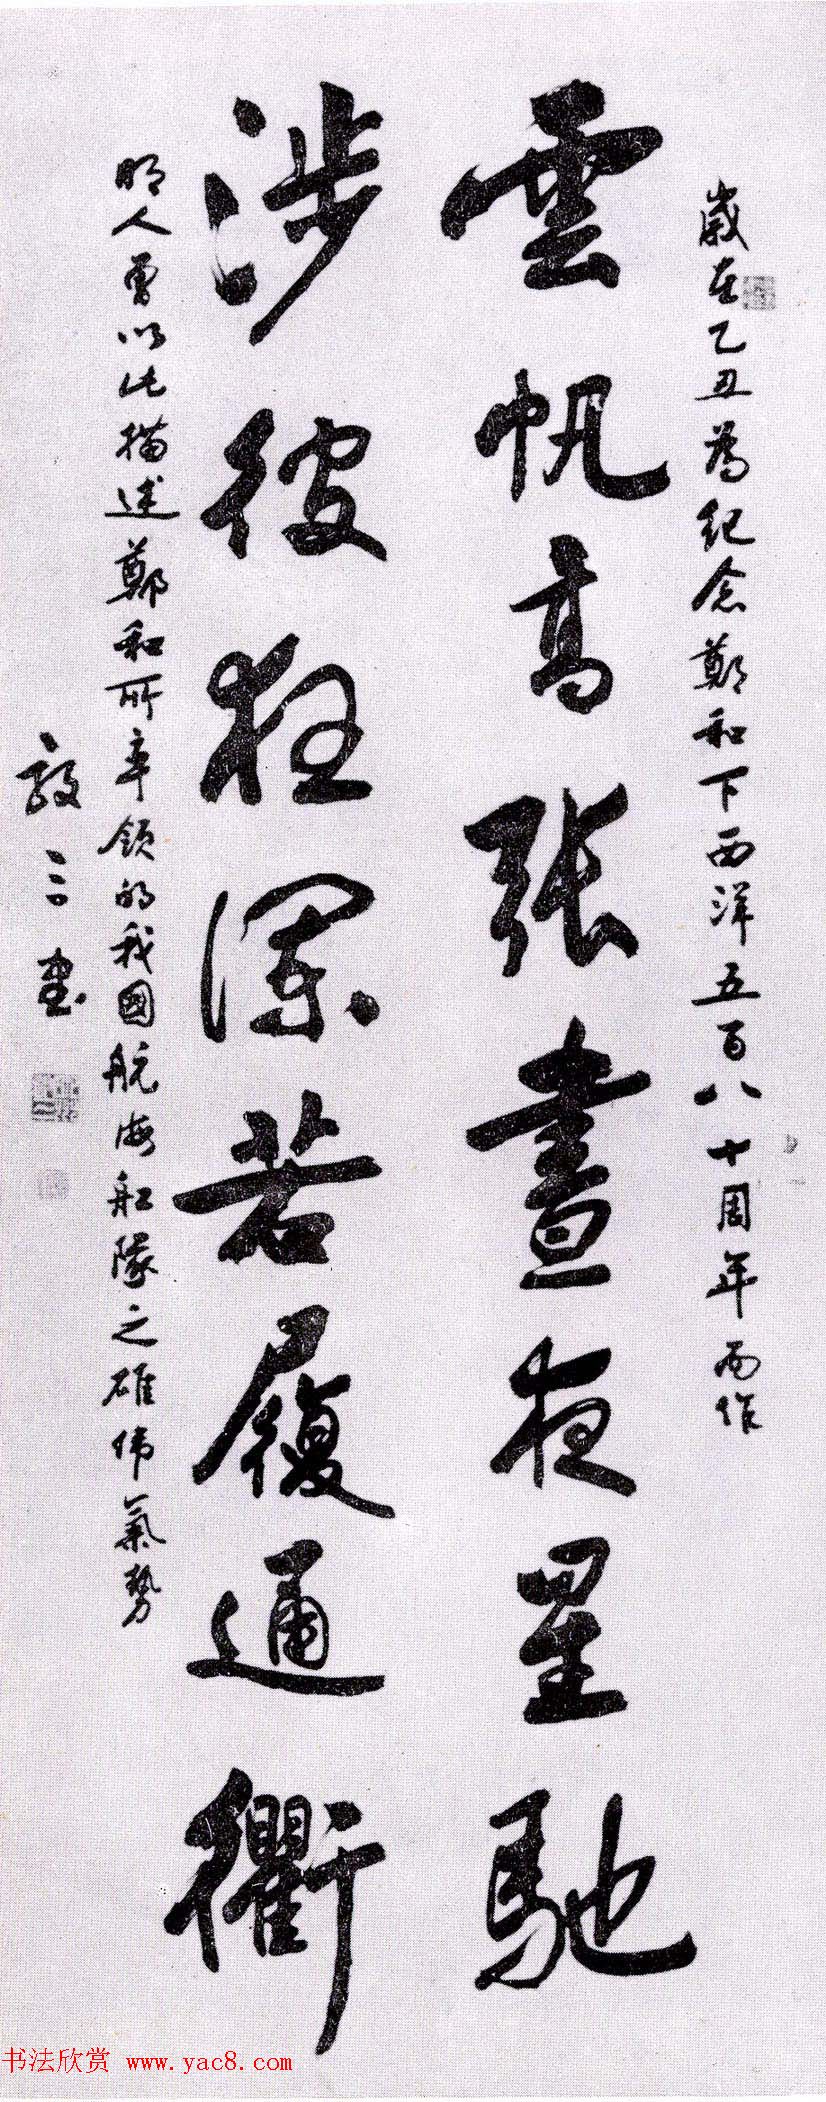 歲在乙丑為紀念鄭和下西洋五百八十周年而作
雲帆高張晝夜星馳
涉彼狂瀾若履通衢
明人曾以此描述鄭和所率領的我國航海船隊之雄偉氣勢
敦三書
书法欣赏 www.yac8.com